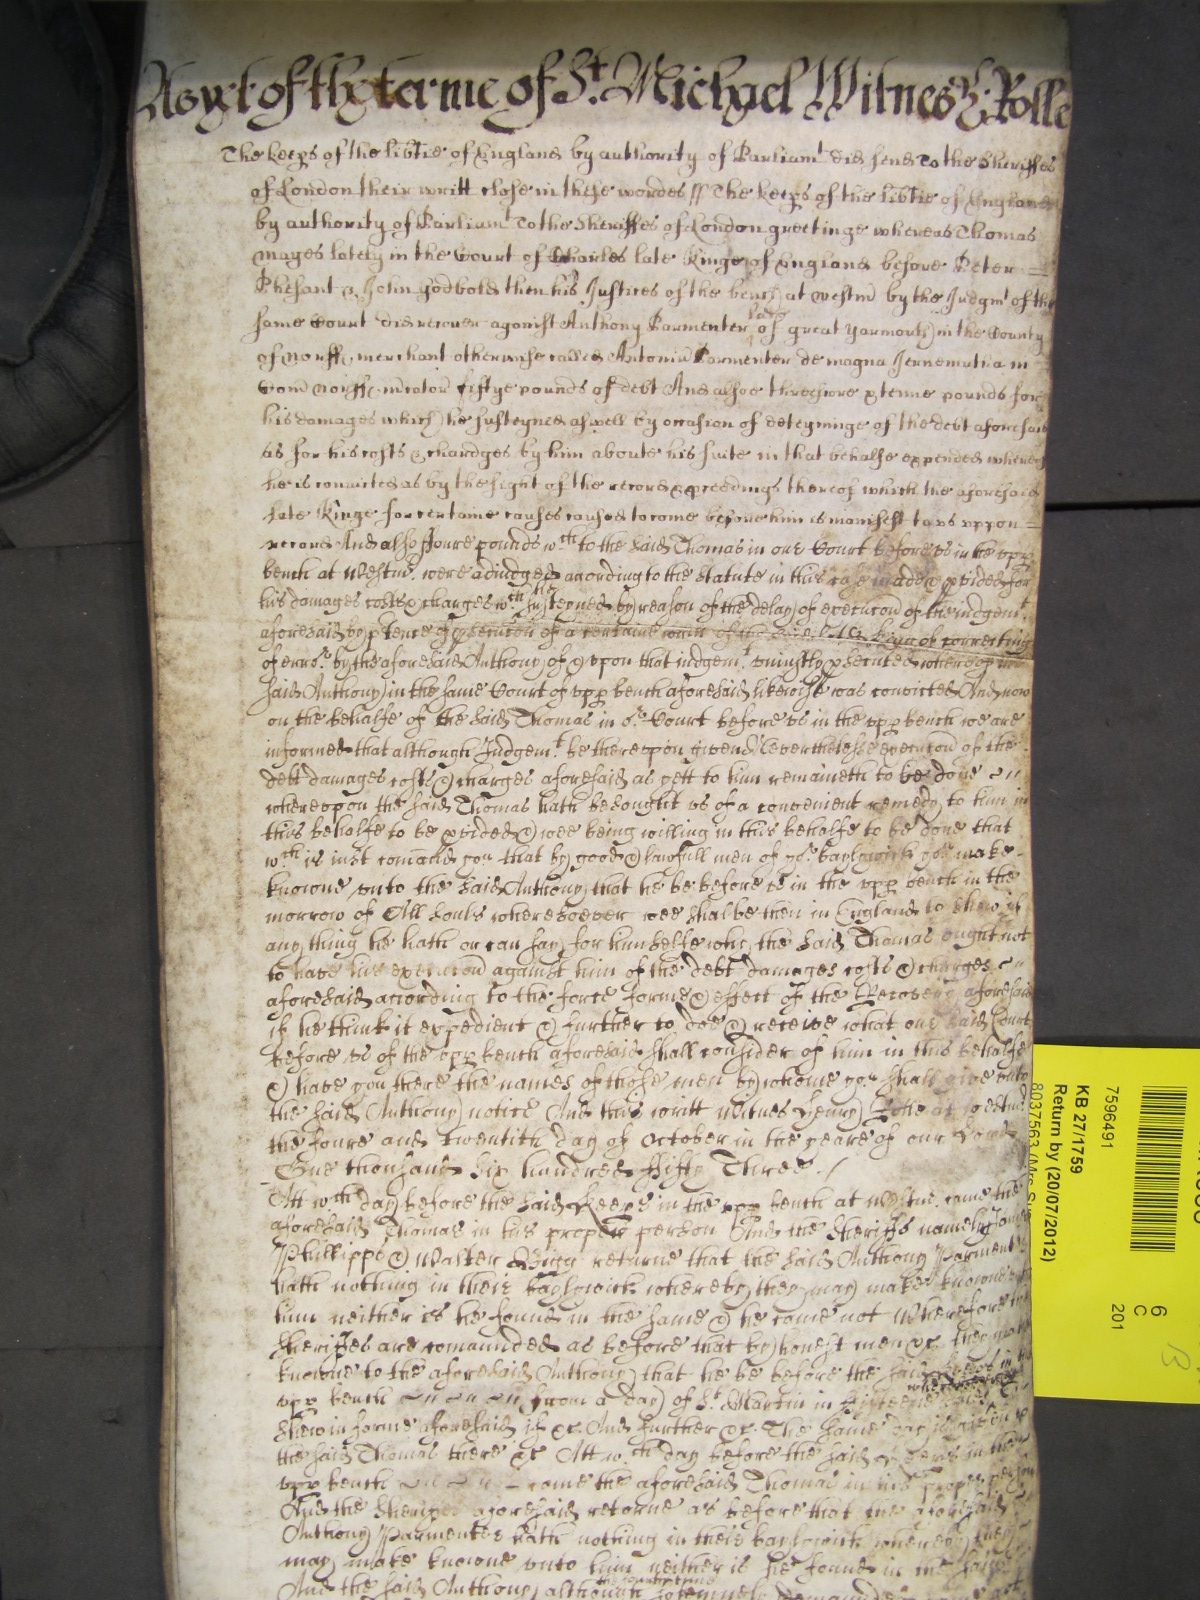 As yet of the terme of St. Michael Witnes H: Rolle
The keeps of the libtie of England by authority of Parliamt did send To the Sheriffes
of London their writt close in these wordes // The keeps of the libtie of England
by authority of Parliamt To the Sheriffes of London greetinge whereas Thomas
Mayes lately in the Court of Charles late Kinge of England before Peter
Phesant & John Godbold then his Justices of the bench at westm by the Judgmt of the
same Court did recover against Anthony Parmenter late of great yarmouth in the County
of Norff merchant otherwise called Antoniu Parmenter de magna Jernemutha in
Com Norff mcator fiftye pounds of debt And alsoe threescore & tenne pounds for
his damages which he susteyned aswell by occasion of deteyninge of the debt aforesaid
as for his costs & chardges by him aboute his suite in that behalfe expended whereof
he is convicted as by the sight of the record & pceedings thereof which the aforesaid
late Kinge for certaine causes caused to come before him is manifest to us uppon
record And also foure pounds wch to the said Thomas in our Court before us in the upp
bench at Westm. were adiudged according to the statute in this case made & pvided for
his damages costs & charges wch he susteyned by reason of the delay of execucon of the iudgemt
aforesaid by ptence of psecucon of a certaine writt of the said late King of correcting
of erro.r by the aforesaid Anthony of & upon that iudgemt uniustly psecuted whereof the
said Anthony in the same Court of upp bench aforesaid likewise was convicted And now
on the behalfe of the said Thomas in or Court before us in the upp bench we are
informed that although Judgemt be thereupon given Neverthelesse execucon of the
debt damages costs & charges aforesaid as yett to him remaineth to be done
whereupon the said Thomas hath besought us of a convenient remedy to him in
this behalfe to be pvided & wee being willing in this behalfe to be done that
wch is iust comand you that by good & lawfull men of yor baylywick you make
knowne unto the said Anthony that he be before us in the upp bench in the
morrow of All Souls wheresoever wee shalbe then in England to shew if
any thing he hath or can say for himselfe why the said Thomas ought not
to have his execucon against him of the debt damages costs & charges
aforesaid according to the force forme & effect of the Recovery aforesaid
if he think it expedient & further to doe & receive what our said Court
before us of the upp bench aforesaid shall consider of him in this behalfe
& have you there the names of those men by whome you shall give unto
the said Anthony notice And this writt Witnes Henry Rolle at westm
the foure and twentith day of October in the yeare of our Lord
One thousand six hundred fifty Three./
Att wch day before the said Keeps in the upp bench at Westm. came the
aforesaid Thomas in his proper person And the Sheriffs namely James
Phillipps & Walter Bigg returne that the said Anthony Parmenter
hath nothing in their baylywick whereby they may make knowne to
him neither is he found in the same & he came not Wherefore the
Sheriffes are comaunded as before that by honest men &c. they make
knowne to the aforesaid Anthony that he be before the said Keeps in the
upp bench from a day of St. Martin in fifteene dayes
shew in forme aforesaid if &c. And further &c. The same day is given to
the said Thomas there &c Att wch day before the said Keeps in the
upp bench came the aforesaid Thomas in his proper person
And the Sheriffes aforesaid returne as before that the aforesaid
Anthony Parmenter hath nothing in their baylywick whereby they
may make knowne unto him neither is he found in the same
And the said Anthony although the fourth time solemnely demaunded came not
7596491
KB 27/1759
Return by (20/07/2012)
8037563
6
C
201